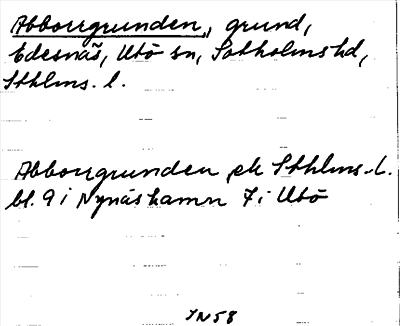 Abborrgrunden, grund,
Edesnäs, Utö sn, Sotholms hd,
Sthlms. l.
Abborrgrunden ek Sthlms. l.
bl. 9 i Nynäshamn 7 i Utö
JN58